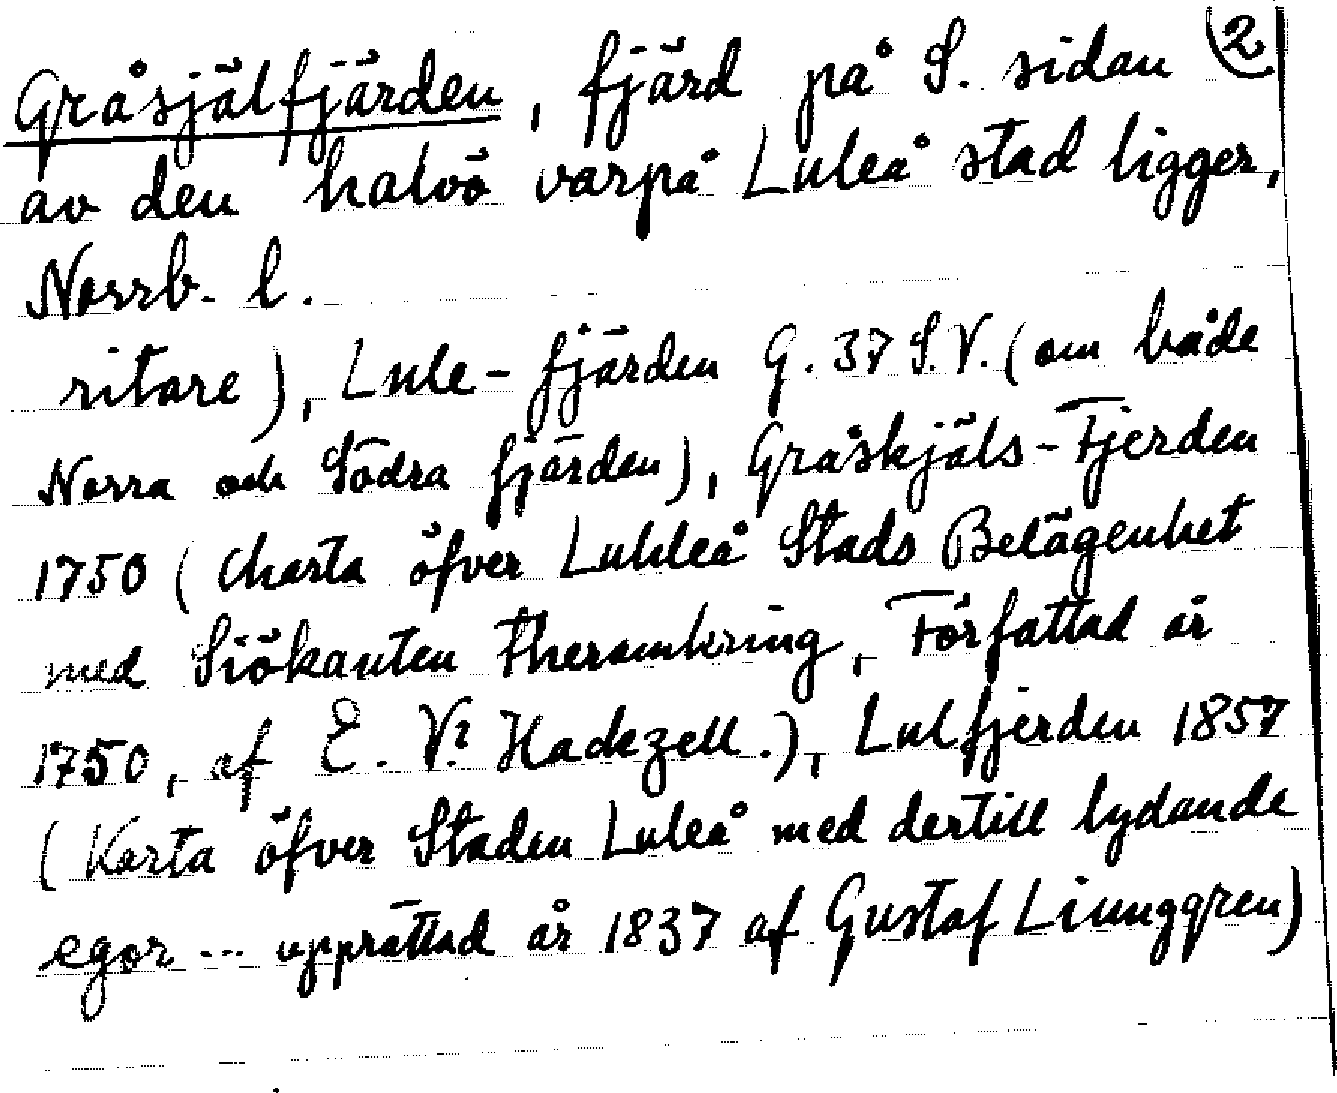 Gråsjälfjärden, fjärd på S. sidan ②
av den halvö varpå Luleå stad ligger,
Norrb. l.
ritare), Lule-fjärden G. 37 S.V. (om både
Norra och Södra fjärden), Gråskjäls-Fjerden
1750 (Charta öfver Luhleå Stads Belägenhet
med Siökanten theromkring, Författad år
1750, af E. V. Hackzell.), Lulfjerden 1857
(Karta öfver Staden Luleå med dertill lydande
egor ... upprättad år 1837 af Gustaf Liunggren)